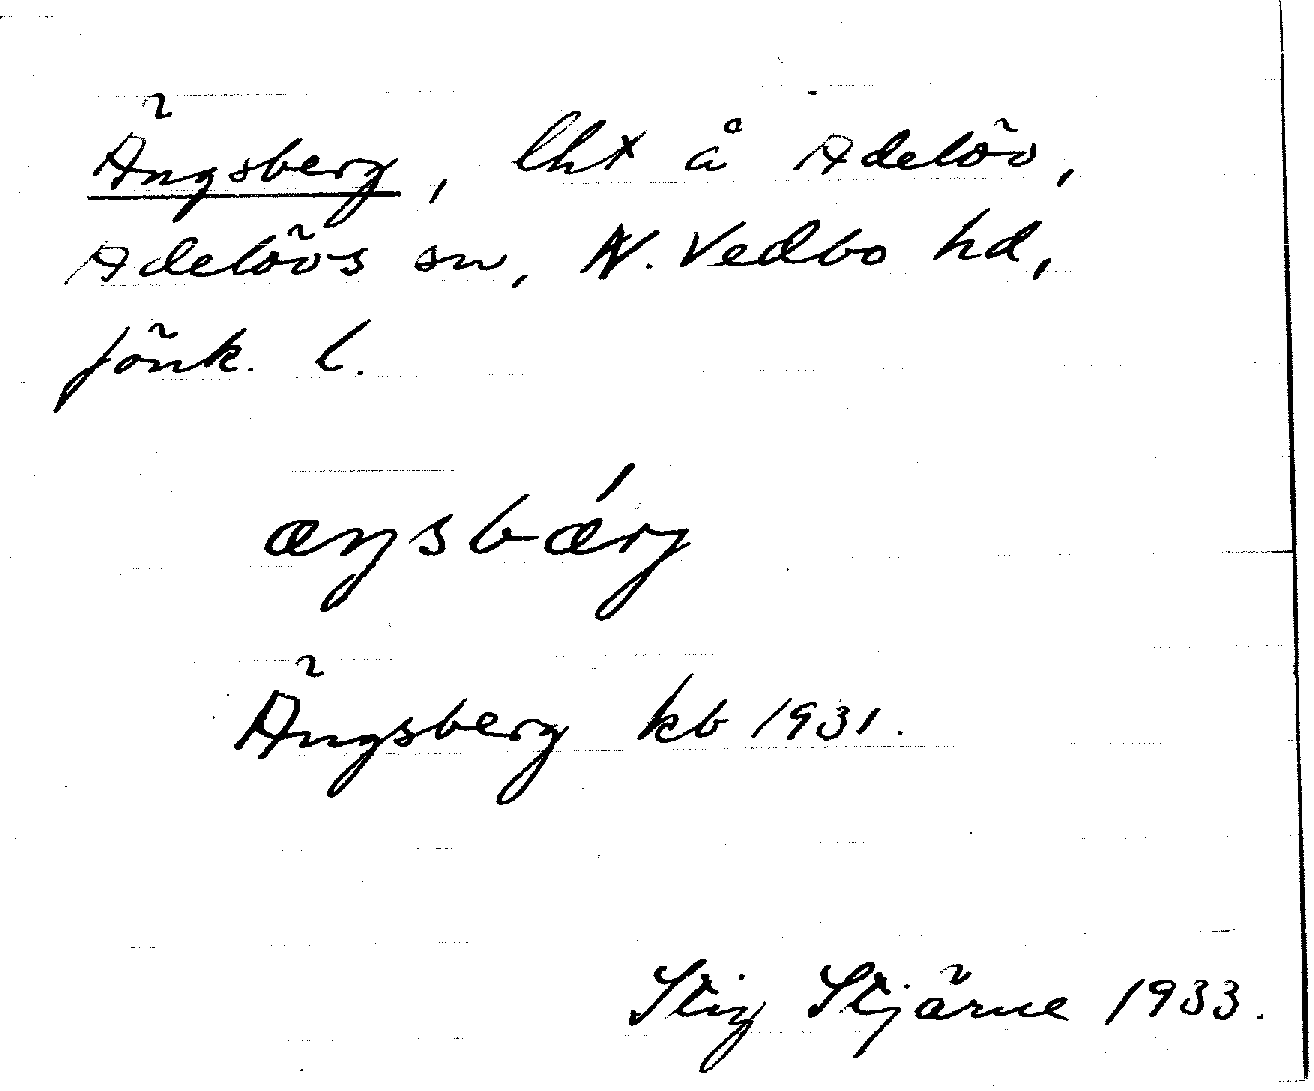 Ängsberg, lht å Adelöv,
Adelövs sn, N. Vedbo hd,
Jönk. l.
æŋsbǽrj
Ängsberg kb 1931.
Stig Stjärne 1933.